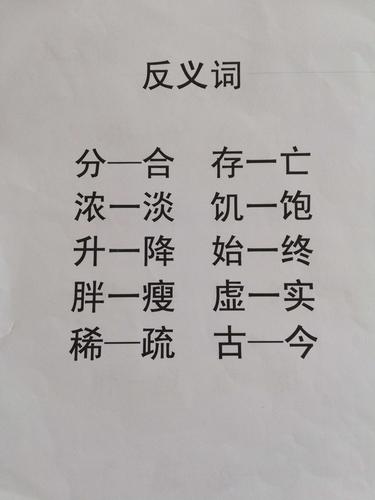 反义词
分—合 存一亡
浓一淡 饥一饱
升一降 始一终
胖一瘦 虚一实
稀—疏 古—今